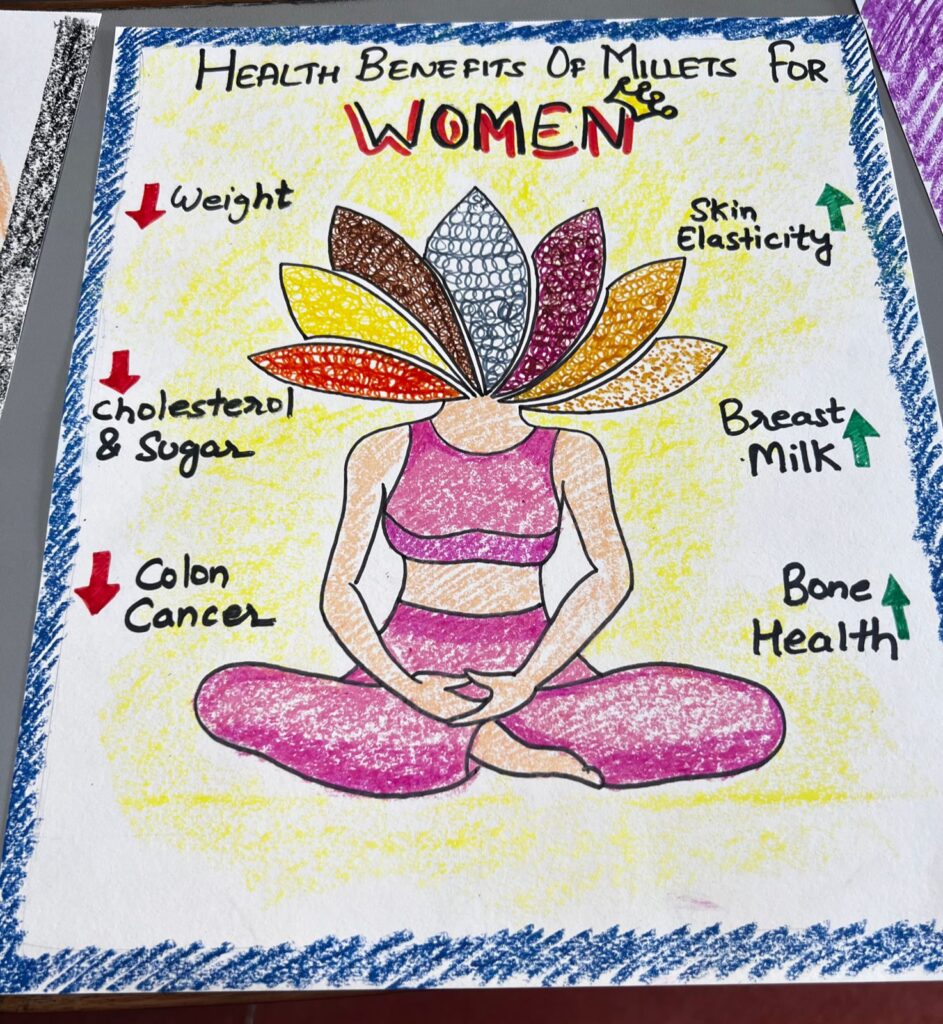 HEALTH BENEFITS OF MILLETS FOR
WOMEN
Weight
Skin
Elasticity
Cholesterol
& Sugar
Breast
Milk
Colon
Cancer
Bone
Health